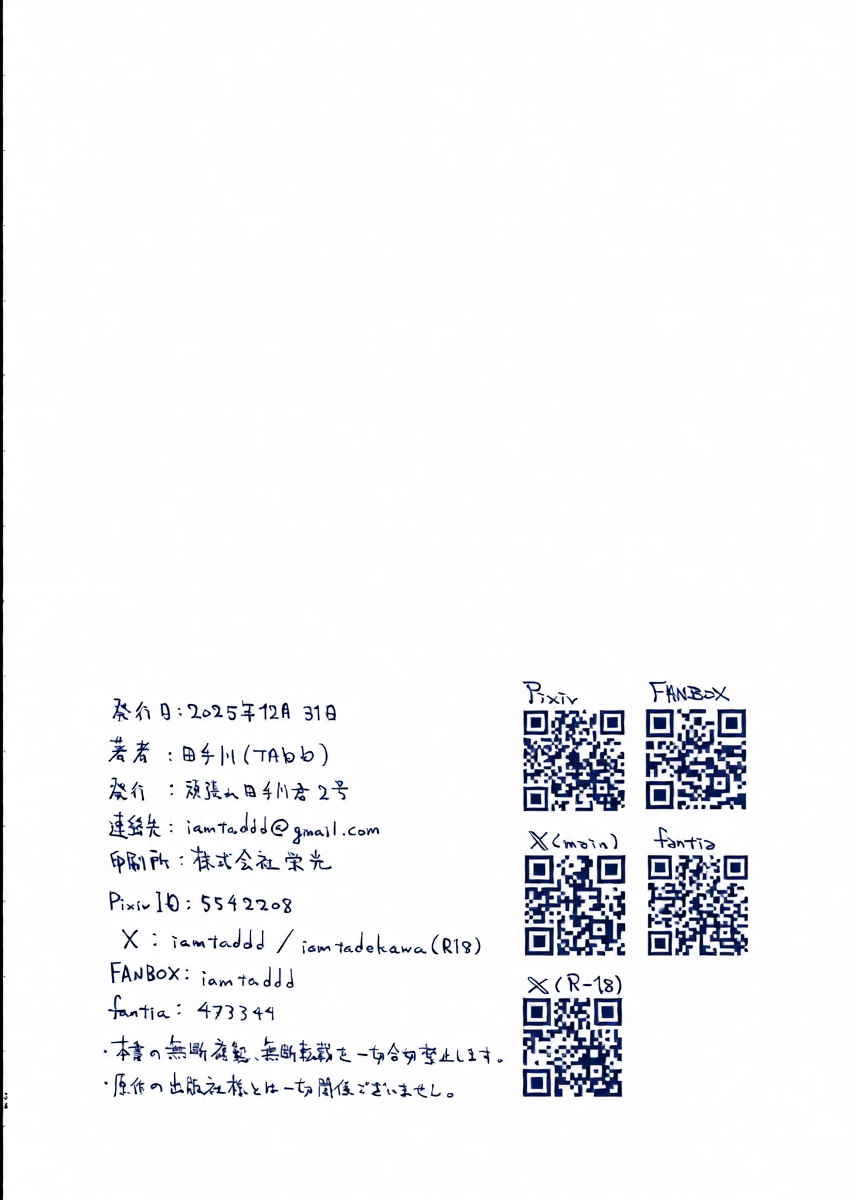 発行日:2025年12月31日
著者:田手川(TAbb)
発行:頑張れ田手川君2号
連絡先:iamtaddd@gmail.com
印刷所:株式会社栄光
Pixiv ID:5542208
X:iamtaddd / iamtadekawa(R18)
FANBOX:iamtaddd
fantia:473344
・本書の無断複製、無断転載を一切合切禁止します。
・原作の出版社様とは一切関係ございません。
Pixiv
FANBOX
X(main)
fantia
X(R-18)